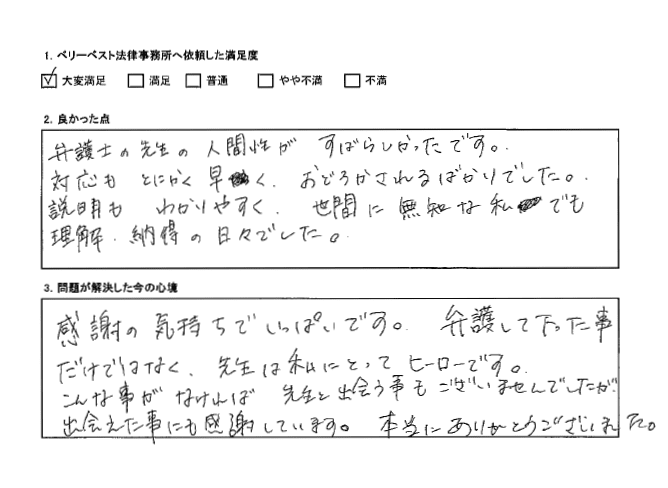 1. ベリーベスト法律事務所へ依頼した満足度
☑ 大変満足 □ 満足 □ 普通 □ やや不満 □ 不満
2. 良かった点
弁護士の先生の人間性が すばらしかったです。
対応も とにかく早く、おどろかされるばかりでした。
説明も わかりやすく、世間に無知な私でも
理解、納得の日々でした。
3. 問題が解決した今の心境
感謝の気持ちでいっぱいです。 弁護して下った事
だけではなく、先生は私にとって ヒーローです。
こんな事がなければ 先生と出会う事もございませんでしたが
出会えた事にも感謝しています。 本当にありがとうございました。